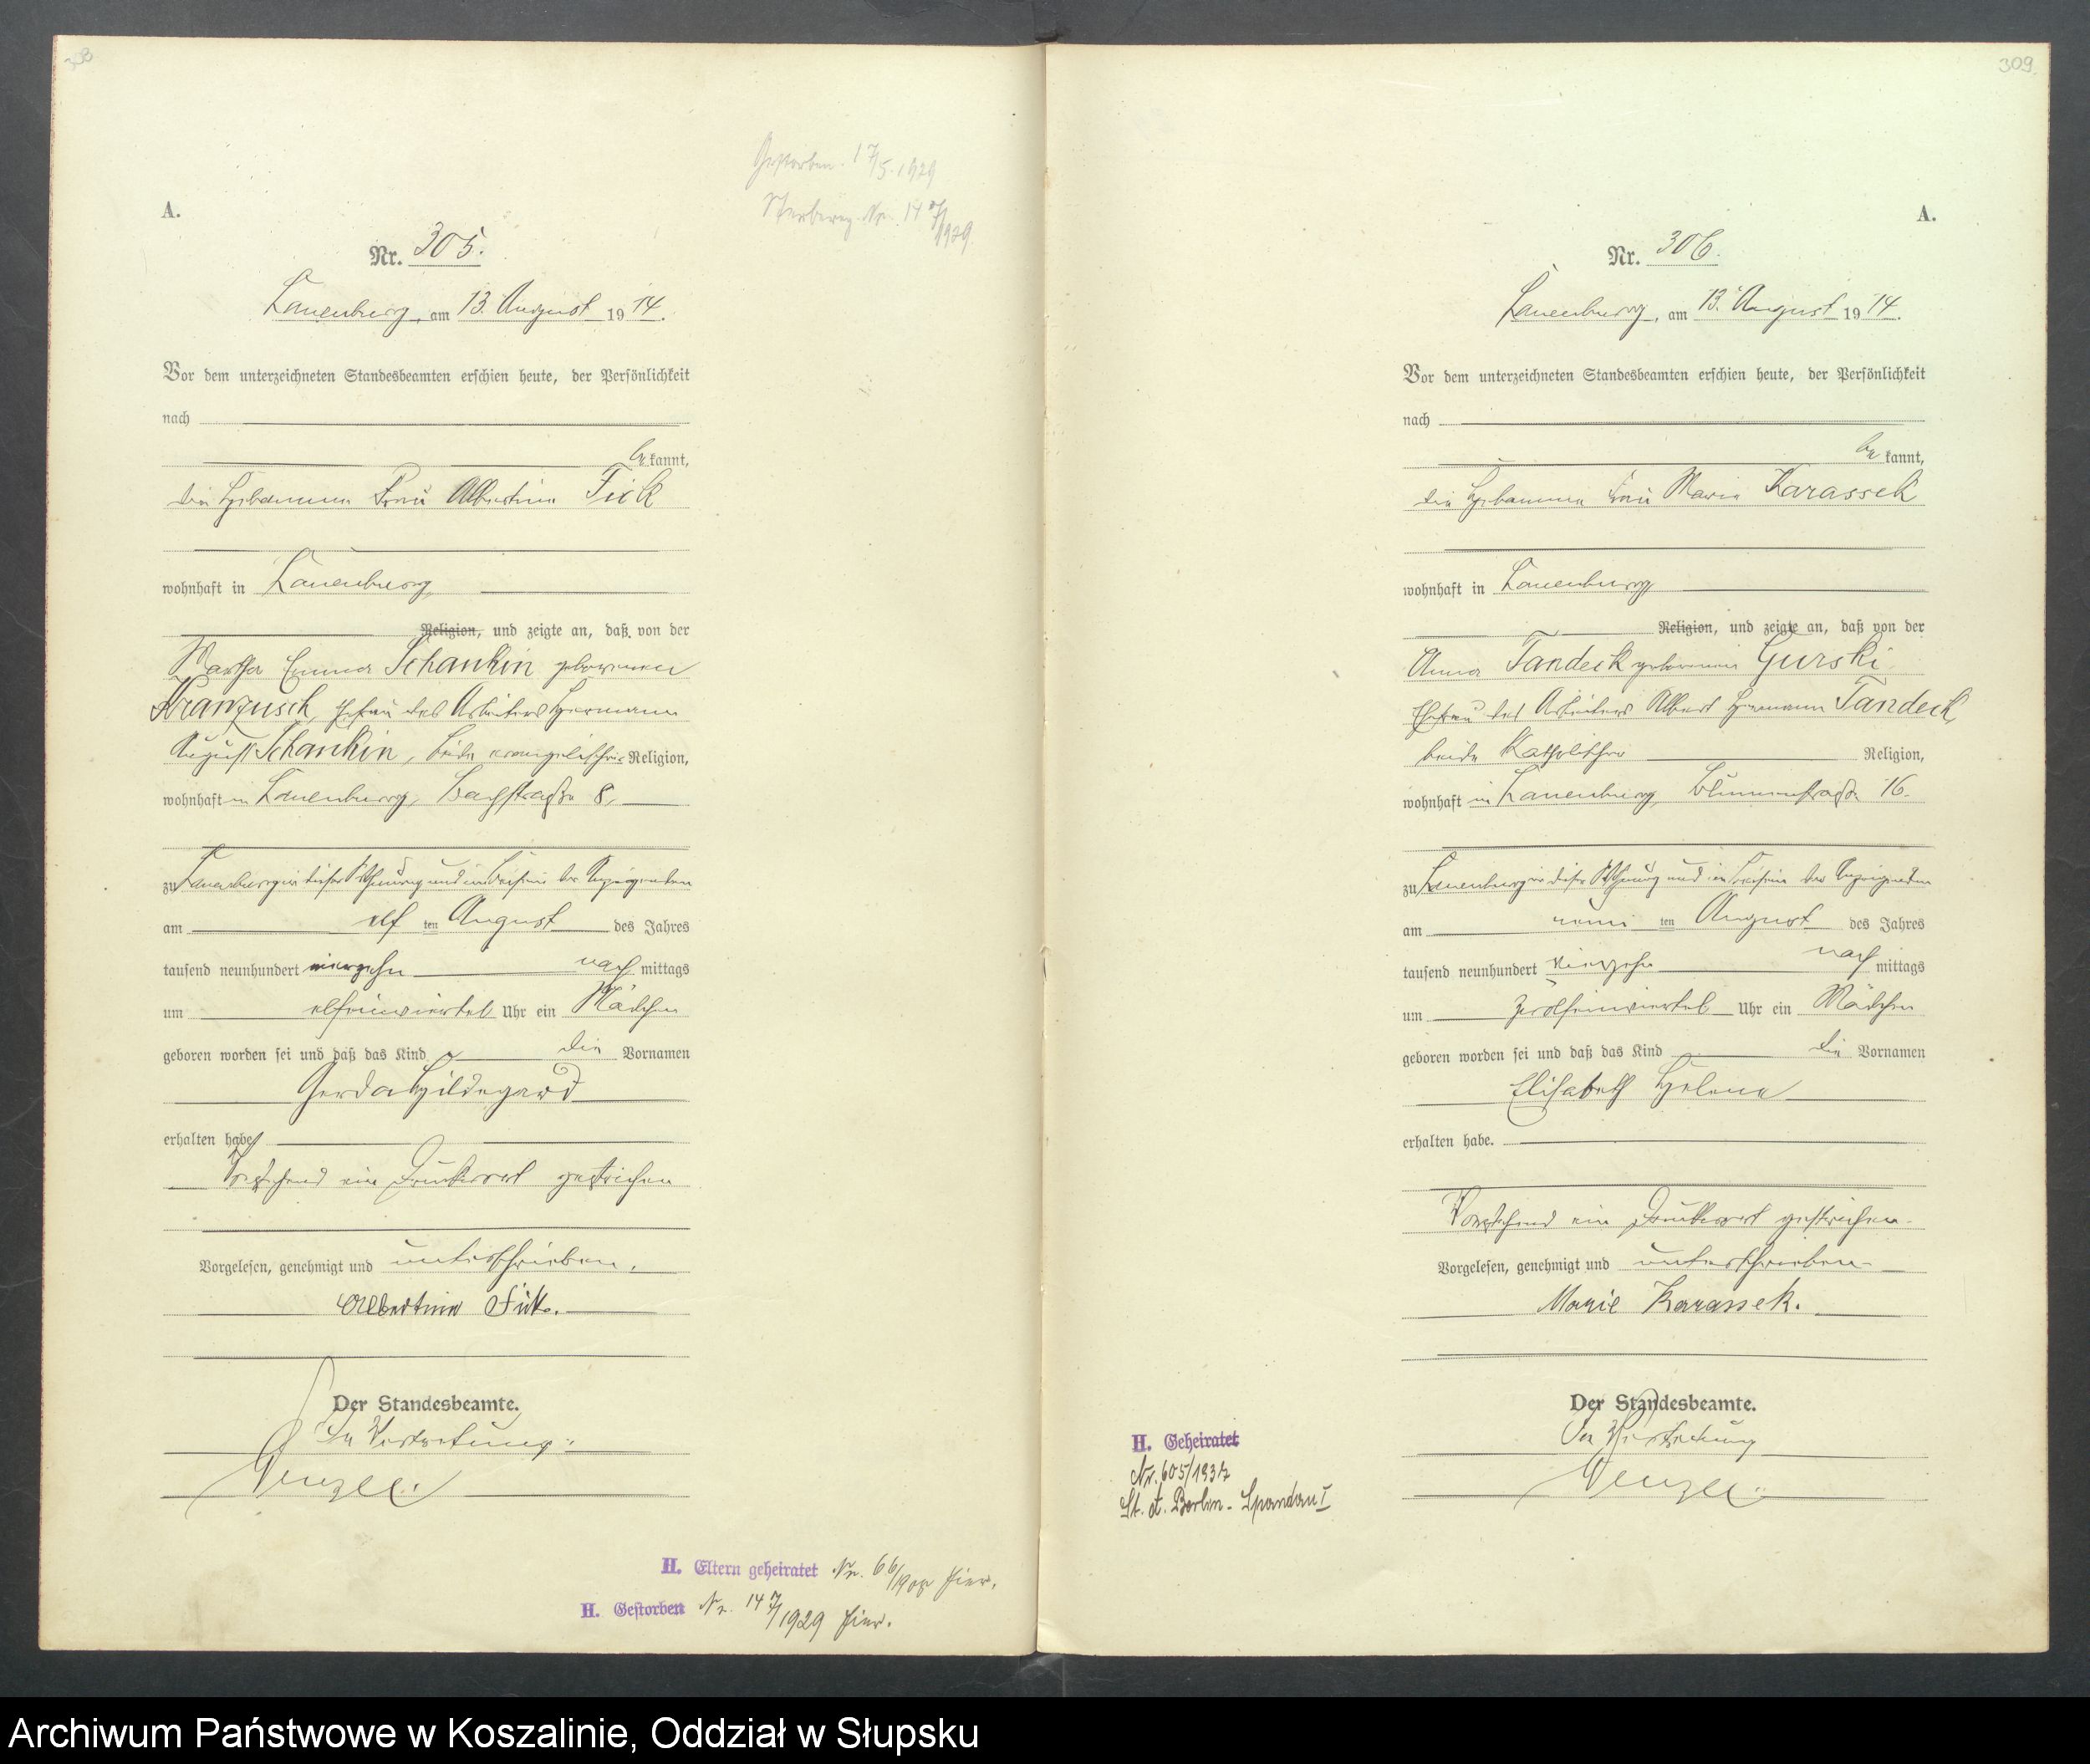 308
Gestorben 17/5. 1929
Sterbereg. Nr. 147/1929
A.
Nr. 305.
Lauenburg, am 13. August 1914.
Vor dem unterzeichneten Standesbeamten erschien heute, der Persönlichkeit
nach
bekannt,
die Hebamme Frau Albertine Fick
wohnhaft in Lauenburg,
Religion, und zeigte an, daß von der
Martha Emma Schankin geborenen
Kranzusch, Ehefrau des Arbeiters Hermann
August Schankin, beide evangelischer Religion,
wohnhaft in Lauenburg, Bachstraße 8,
zu Lauenburg in dieser Wohnung und in Beisein der Anzeigenden
am elf ten August des Jahres
tausend neunhundert vierzehn nachmittags
um elfeinviertel Uhr ein Mädchen
geboren worden sei und daß das Kind die Vornamen
Gerda Hildegard
erhalten habe
Vorstehend ein Druckwort gestrichen
Vorgelesen, genehmigt und unterschrieben.
Albertine Fick.
Der Standesbeamte.
In Vertretung:
Wenzel.
H. Eltern geheiratet Nr. 66/ hier.
H. Gestorben Nr. 147/1929 hier.
309.
A.
Nr. 306.
Lauenburg, am 13. August 1914.
Vor dem unterzeichneten Standesbeamten erschien heute, der Persönlichkeit
nach
bekannt,
die Hebamme Frau Marie Karassek
wohnhaft in Lauenburg
Religion, und zeigte an, daß von der
Anna Tandeck geborenen Gurski
Ehefrau des Arbeiters Albert Hermann Tandeck,
beide katholischer Religion,
wohnhaft in Lauenburg, Blumenstraße 16.
zu Lauenburg in dieser Wohnung und in Beisein der Anzeigenden
am neun ten August des Jahres
tausend neunhundert vierzehn nachmittags
um zwölfeinviertel Uhr ein Mädchen
geboren worden sei und daß das Kind die Vornamen
Elisabeth Helene
erhalten habe.
Vorstehend ein Druckwort gestrichen.
Vorgelesen, genehmigt und unterschrieben
Marie Karassek.
Der Standesbeamte.
In Vertretung
Wenzel.
H. Geheiratet
Nr. 605/1937
St. A. Berlin-Spandau I
Archiwum Państwowe w Koszalinie, Oddział w Słupsku